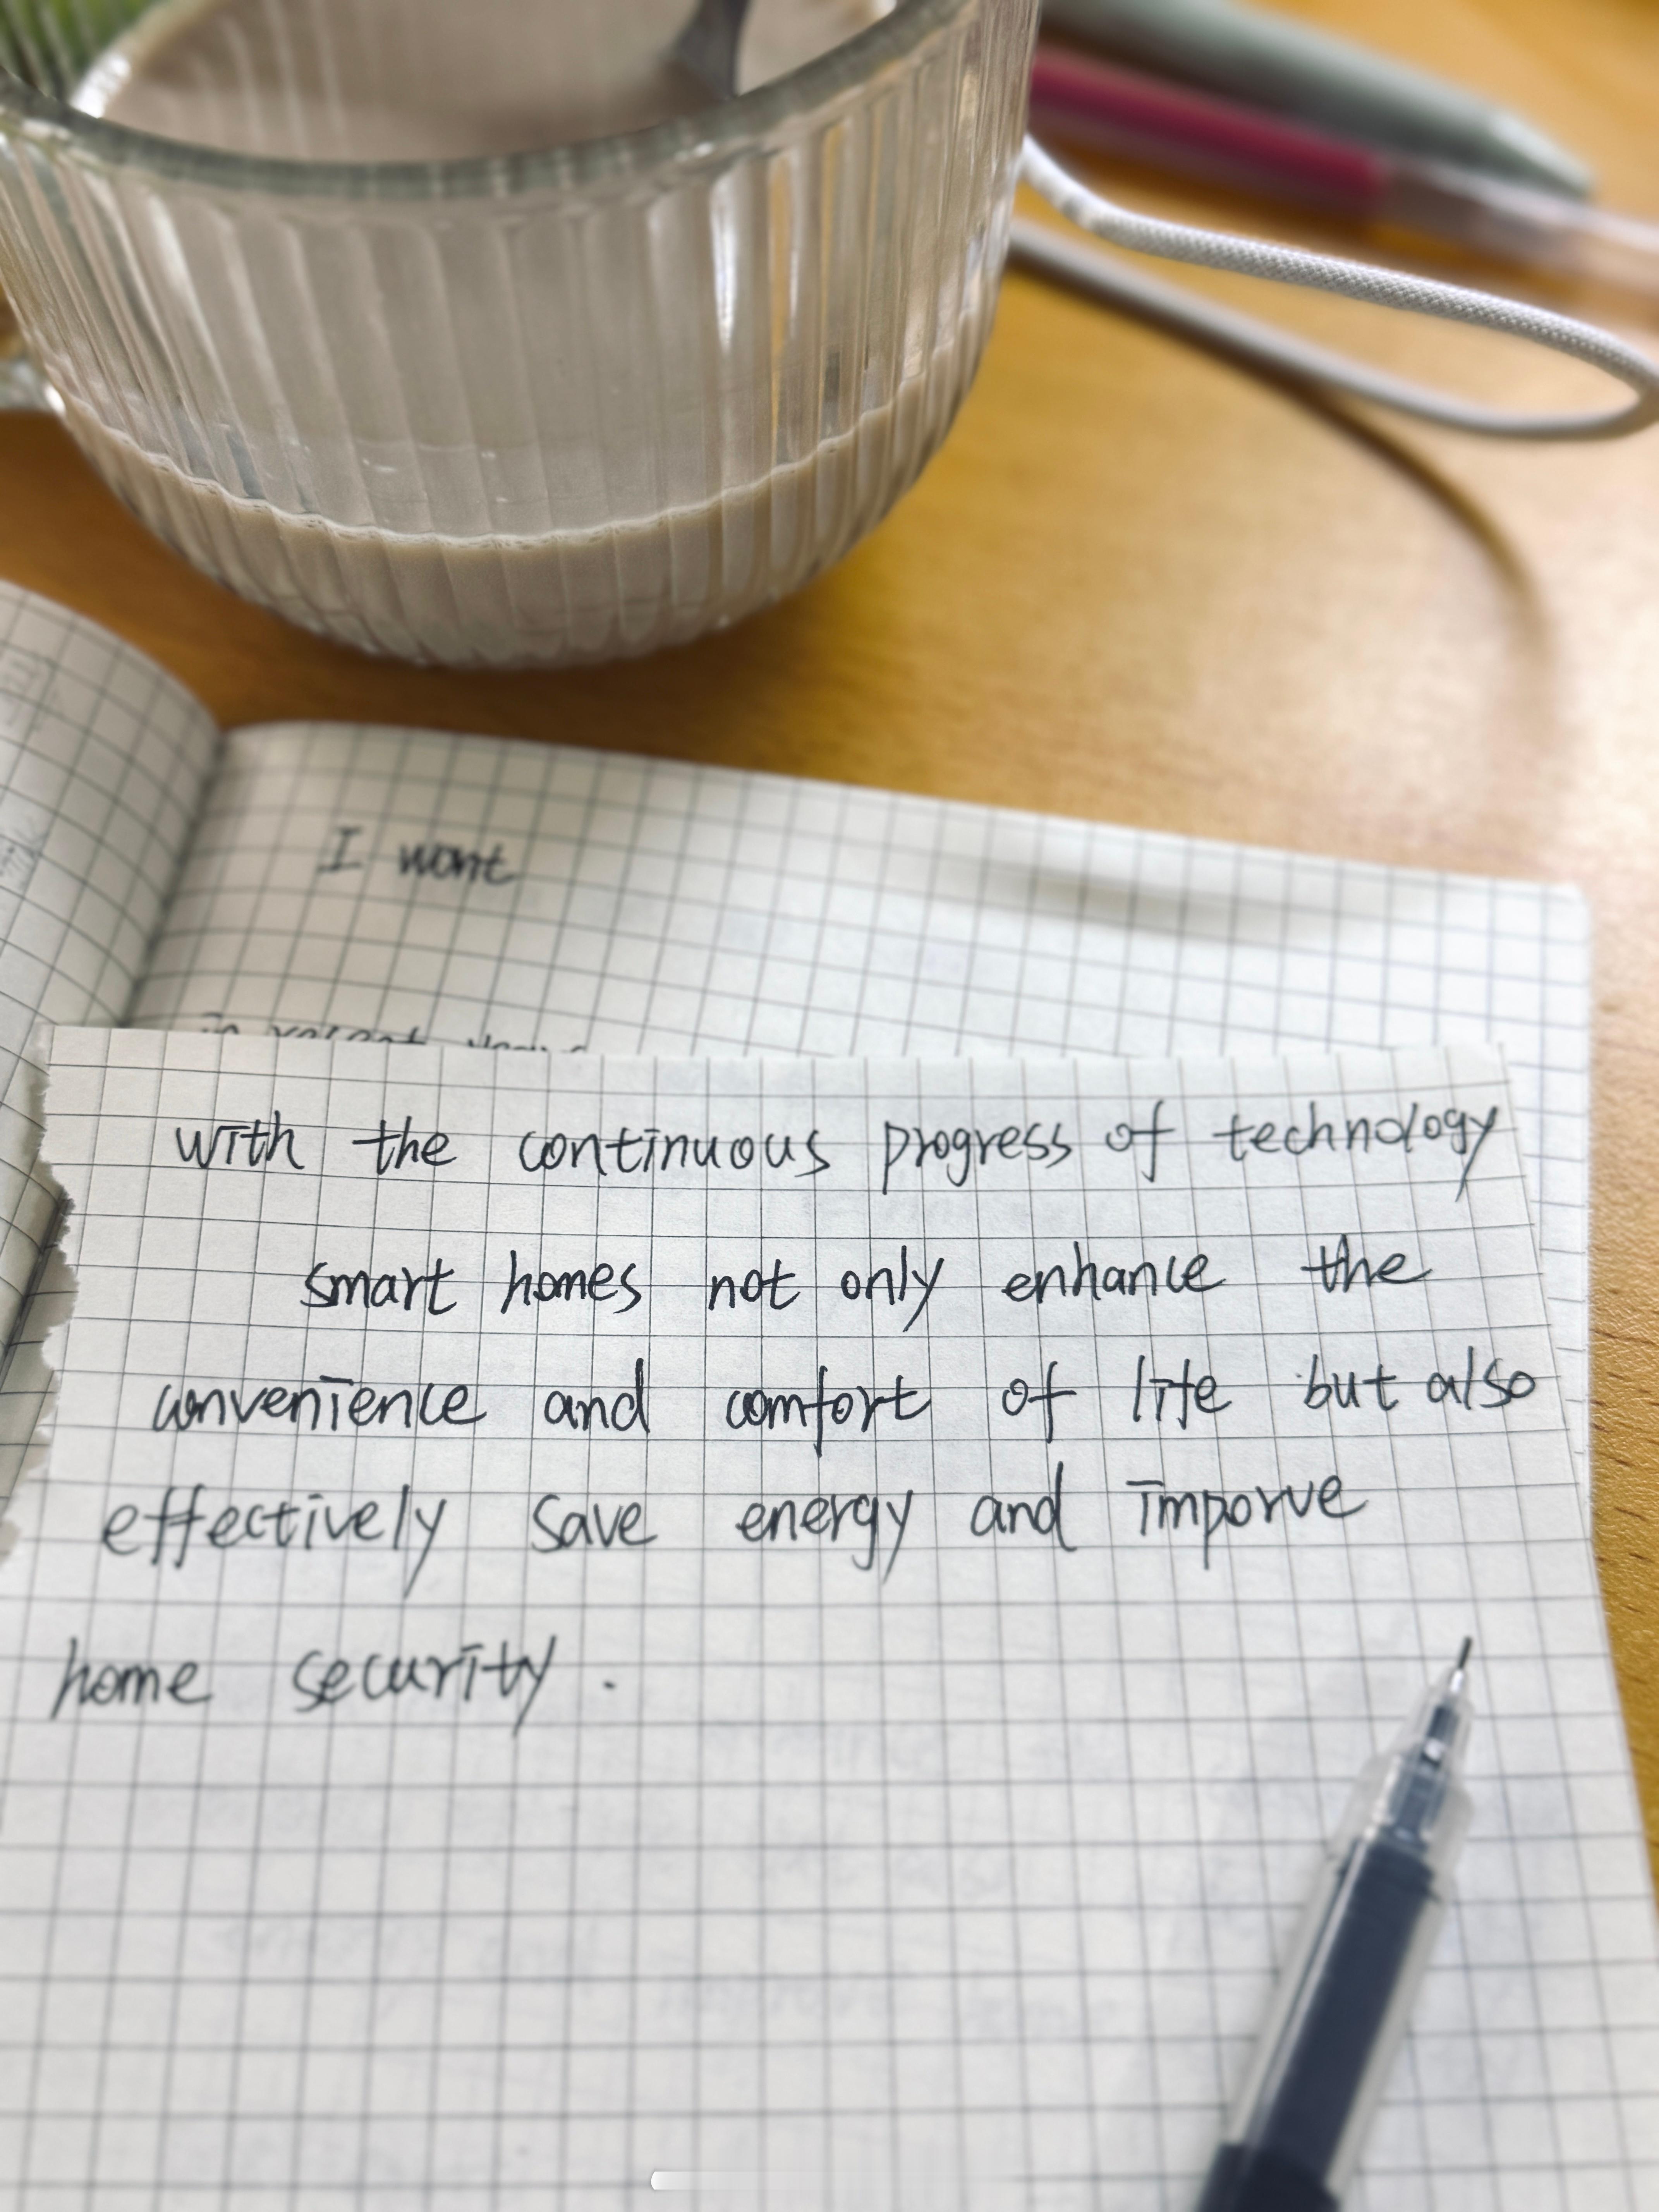 I want
In recent years
with the continuous progress of technology
smart homes not only enhance the
convenience and comfort of life but also
effectively save energy and imporve
home security .